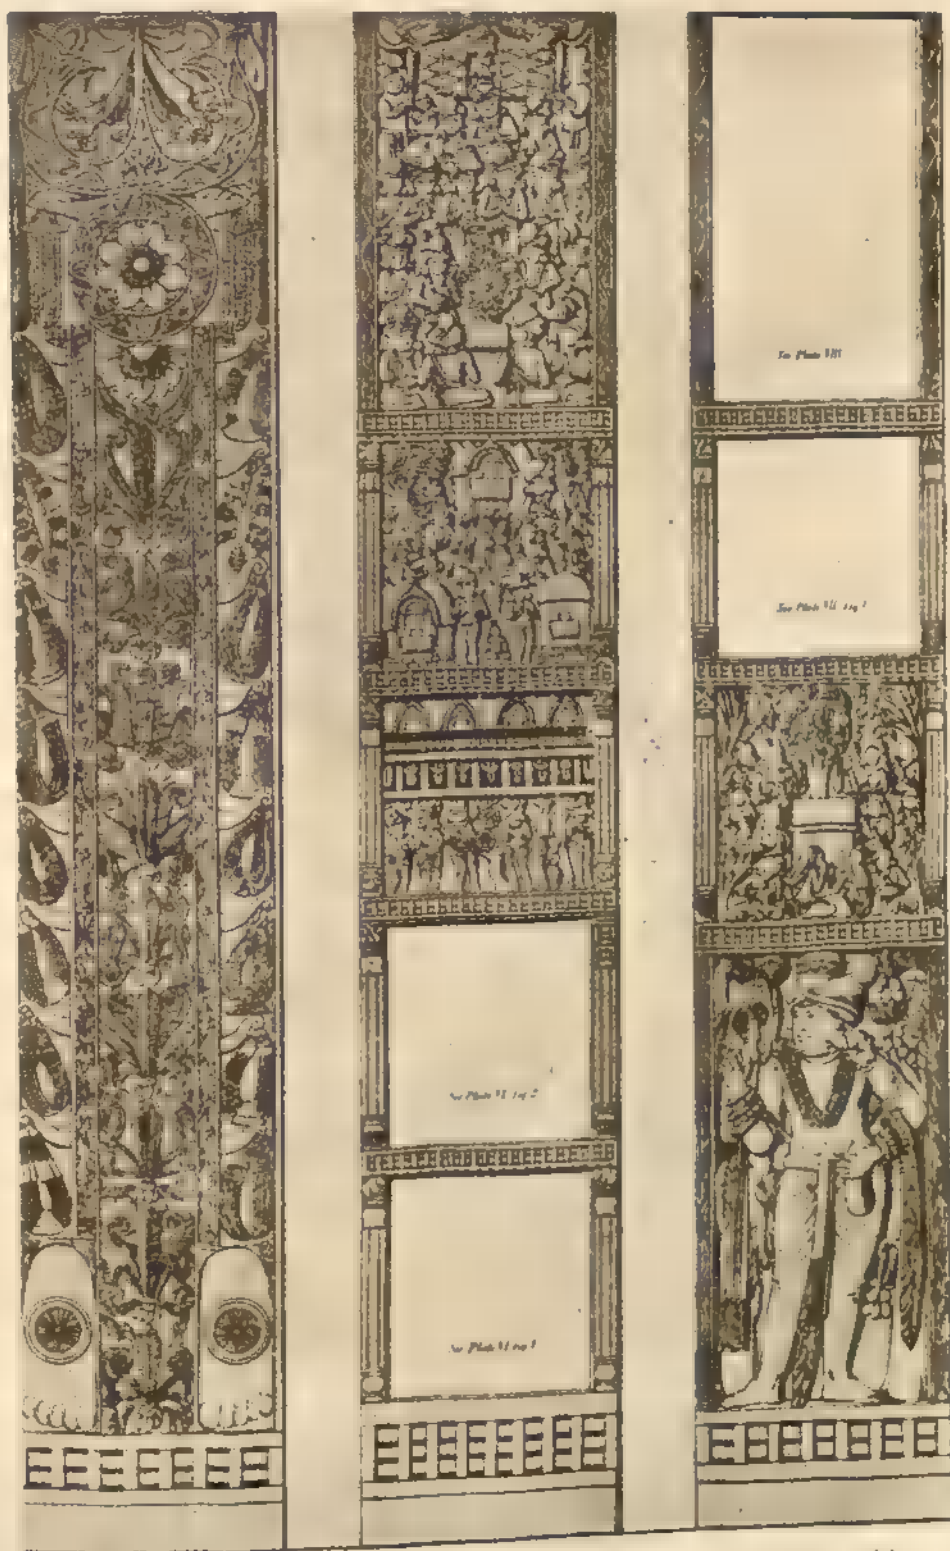 See Plate VIII
See Plate VII fig 1
See Plate VI fig 2
See Plate VI fig 1